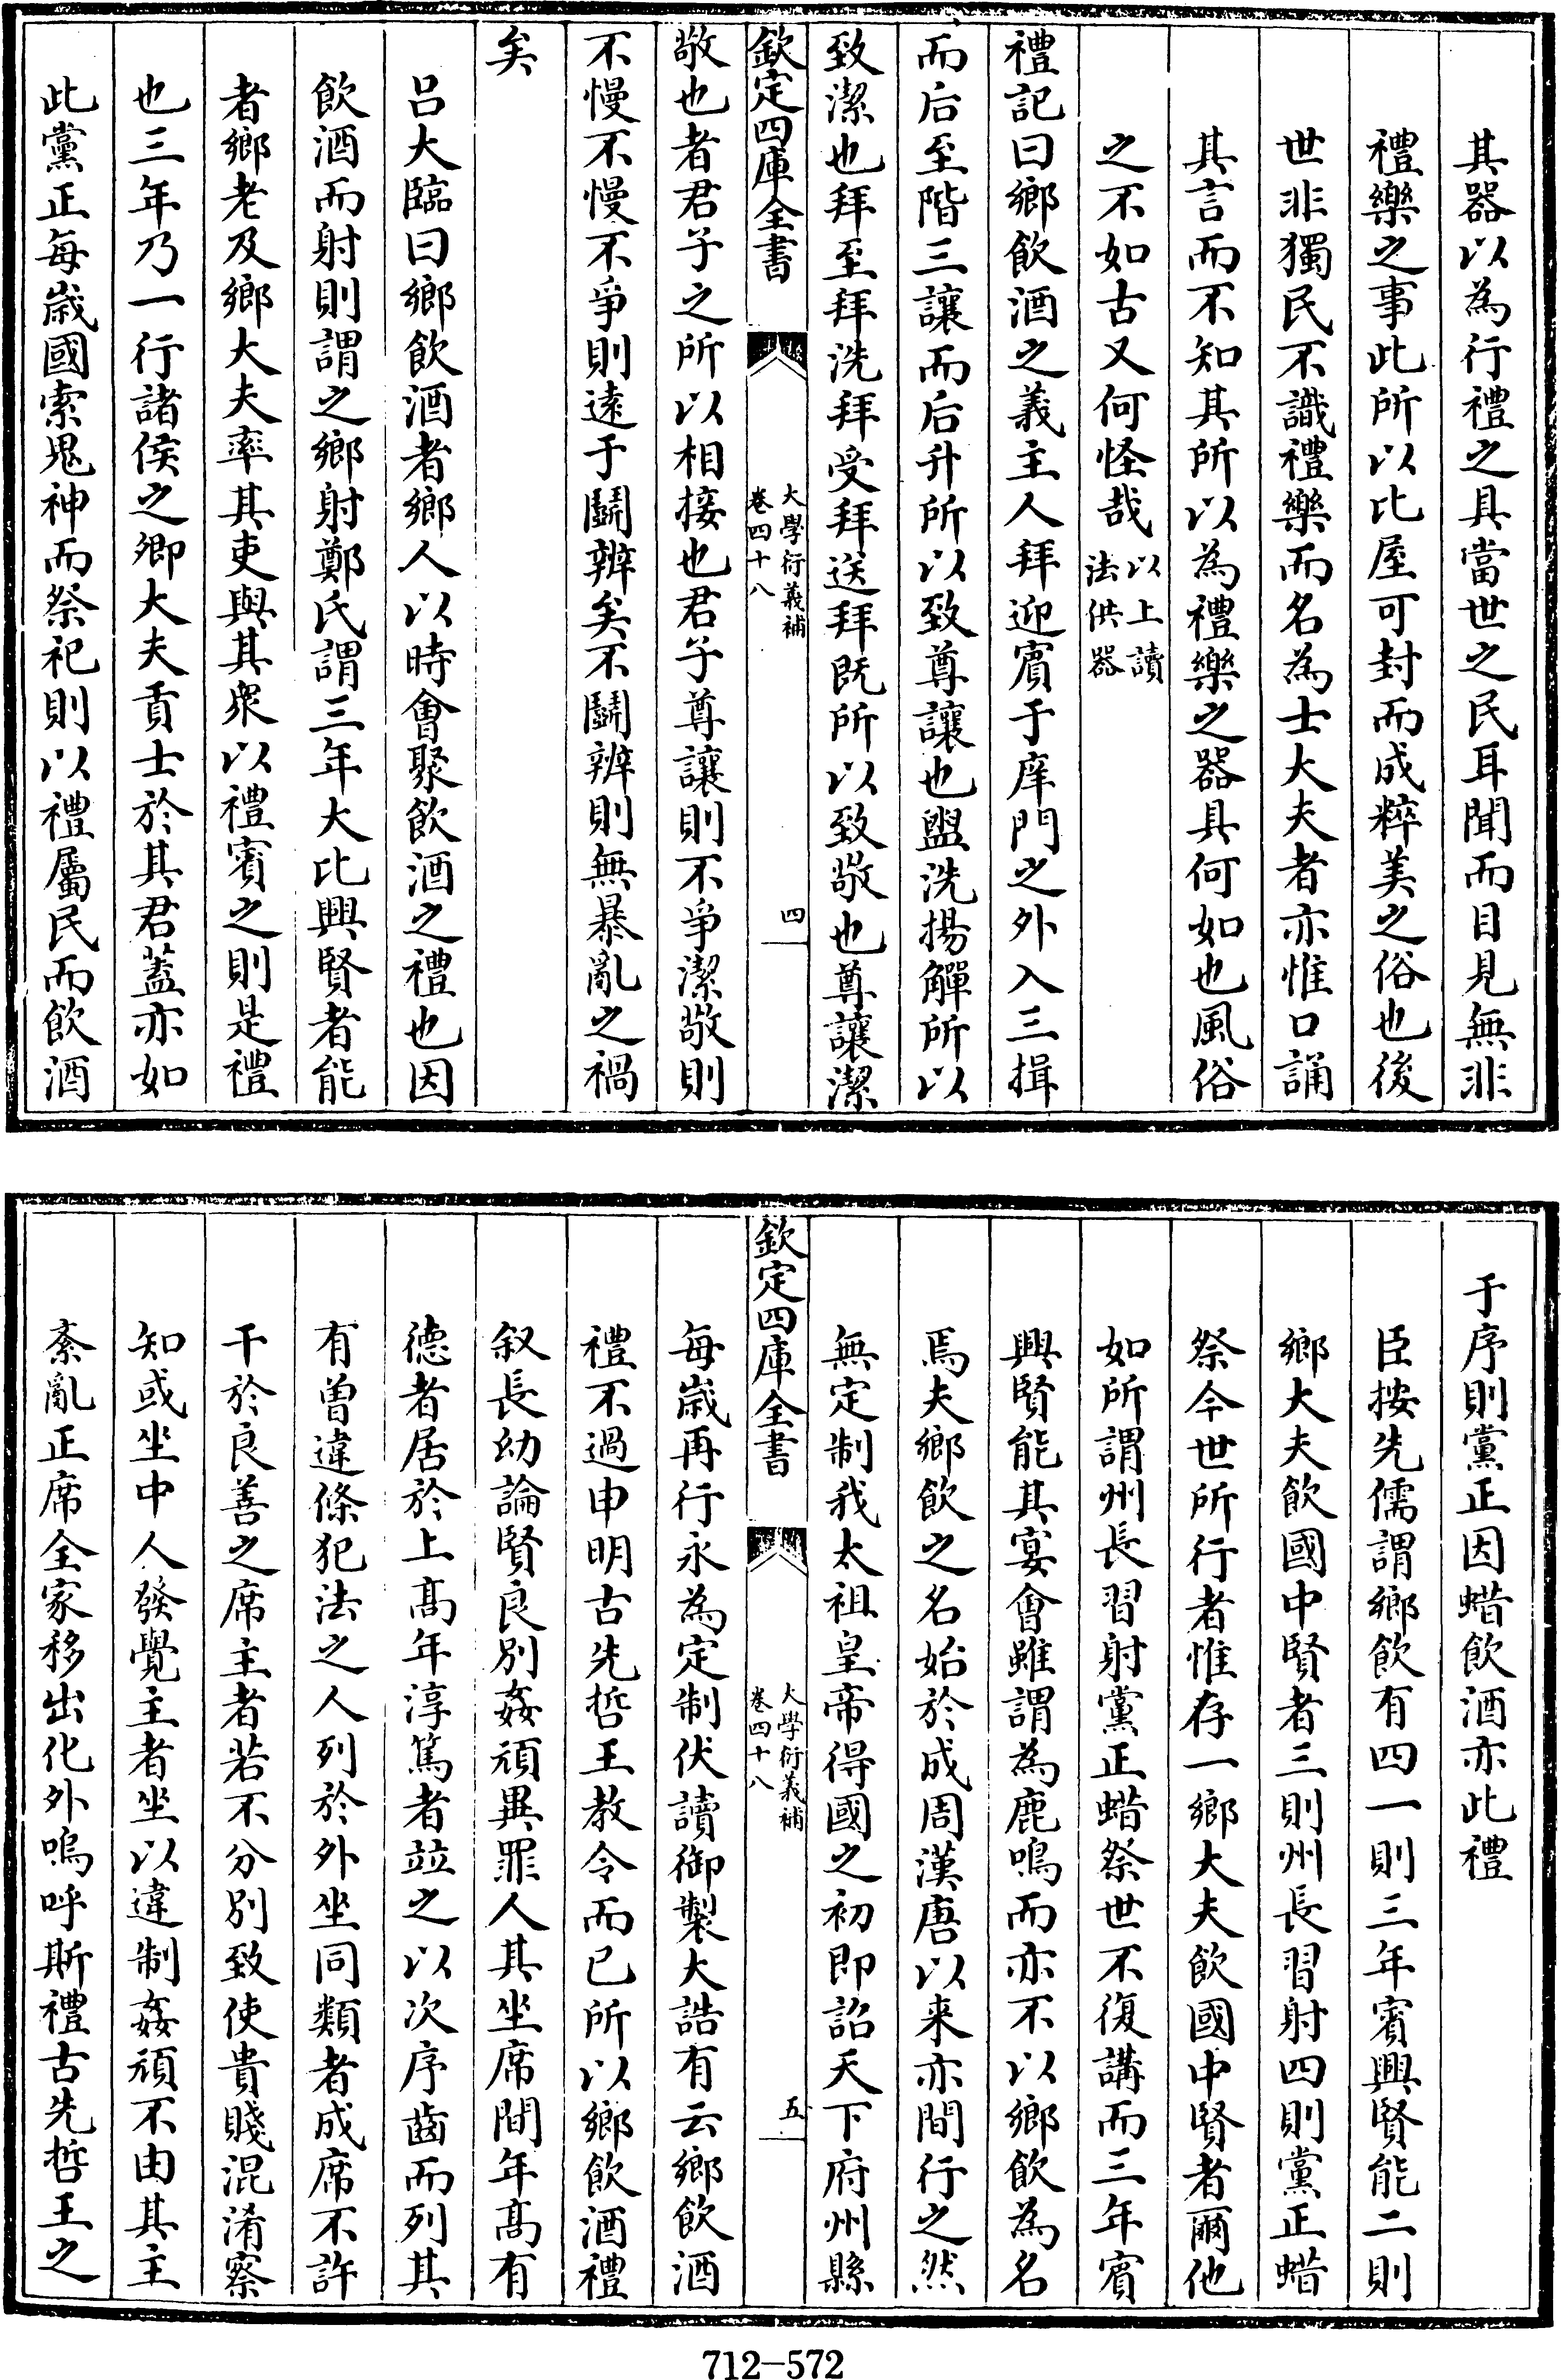 其器以為行禮之具當世之民耳聞而目見無非
禮樂之事此所以比屋可封而成粹美之俗也後
世非獨民不識禮樂而名為士大夫者亦惟口誦
其言而不知其所以為禮樂之器具何如也風俗
之不如古又何怪哉以上讀法供器
禮記曰鄉飲酒之義主人拜迎賓于庠門之外入三揖
而后至階三讓而后升所以致尊讓也盥洗揚觶所以
致潔也拜至拜洗拜受拜送拜既所以致敬也尊讓潔
欽定四庫全書
大學衍義補
卷四十八
四
敬也者君子之所以相接也君子尊讓則不爭潔敬則
不慢不慢不爭則遠于鬬辨矣不鬬辨則無暴亂之禍
矣
呂大臨曰鄉飲酒者鄉人以時會聚飲酒之禮也因
飲酒而射則謂之鄉射鄭氏謂三年大比興賢者能
者鄉老及鄉大夫率其吏與其衆以禮賓之則是禮
也三年乃一行諸侯之卿大夫貢士於其君蓋亦如
此黨正每歲國索鬼神而祭祀則以禮屬民而飲酒
于序則黨正因蜡飲酒亦此禮
臣按先儒謂鄉飲有四一則三年賓興賢能二則
鄉大夫飲國中賢者三則州長習射四則黨正蜡
祭今世所行者惟存一鄉大夫飲國中賢者爾他
如所謂州長習射黨正蜡祭世不復講而三年賓
興賢能其宴會雖謂為鹿鳴而亦不以鄉飲為名
焉夫鄉飲之名始於成周漢唐以来亦間行之然
無定制我太祖皇帝得國之初即詔天下府州縣
欽定四庫全書
大學衍義補
卷四十八
五
每歲再行永為定制伏讀御製大誥有云鄉飲酒
禮不過申明古先哲王教令而已所以鄉飲酒禮
叙長幼論賢良別姦頑異罪人其坐席間年髙有
德者居於上髙年淳篤者竝之以次序齒而列其
有曽違條犯法之人列於外坐同類者成席不許
干於良善之席主者若不分別致使貴賤混淆察
知或坐中人發覺主者坐以違制姦頑不由其主
紊亂正席全家移出化外嗚呼斯禮古先哲王之
712-572